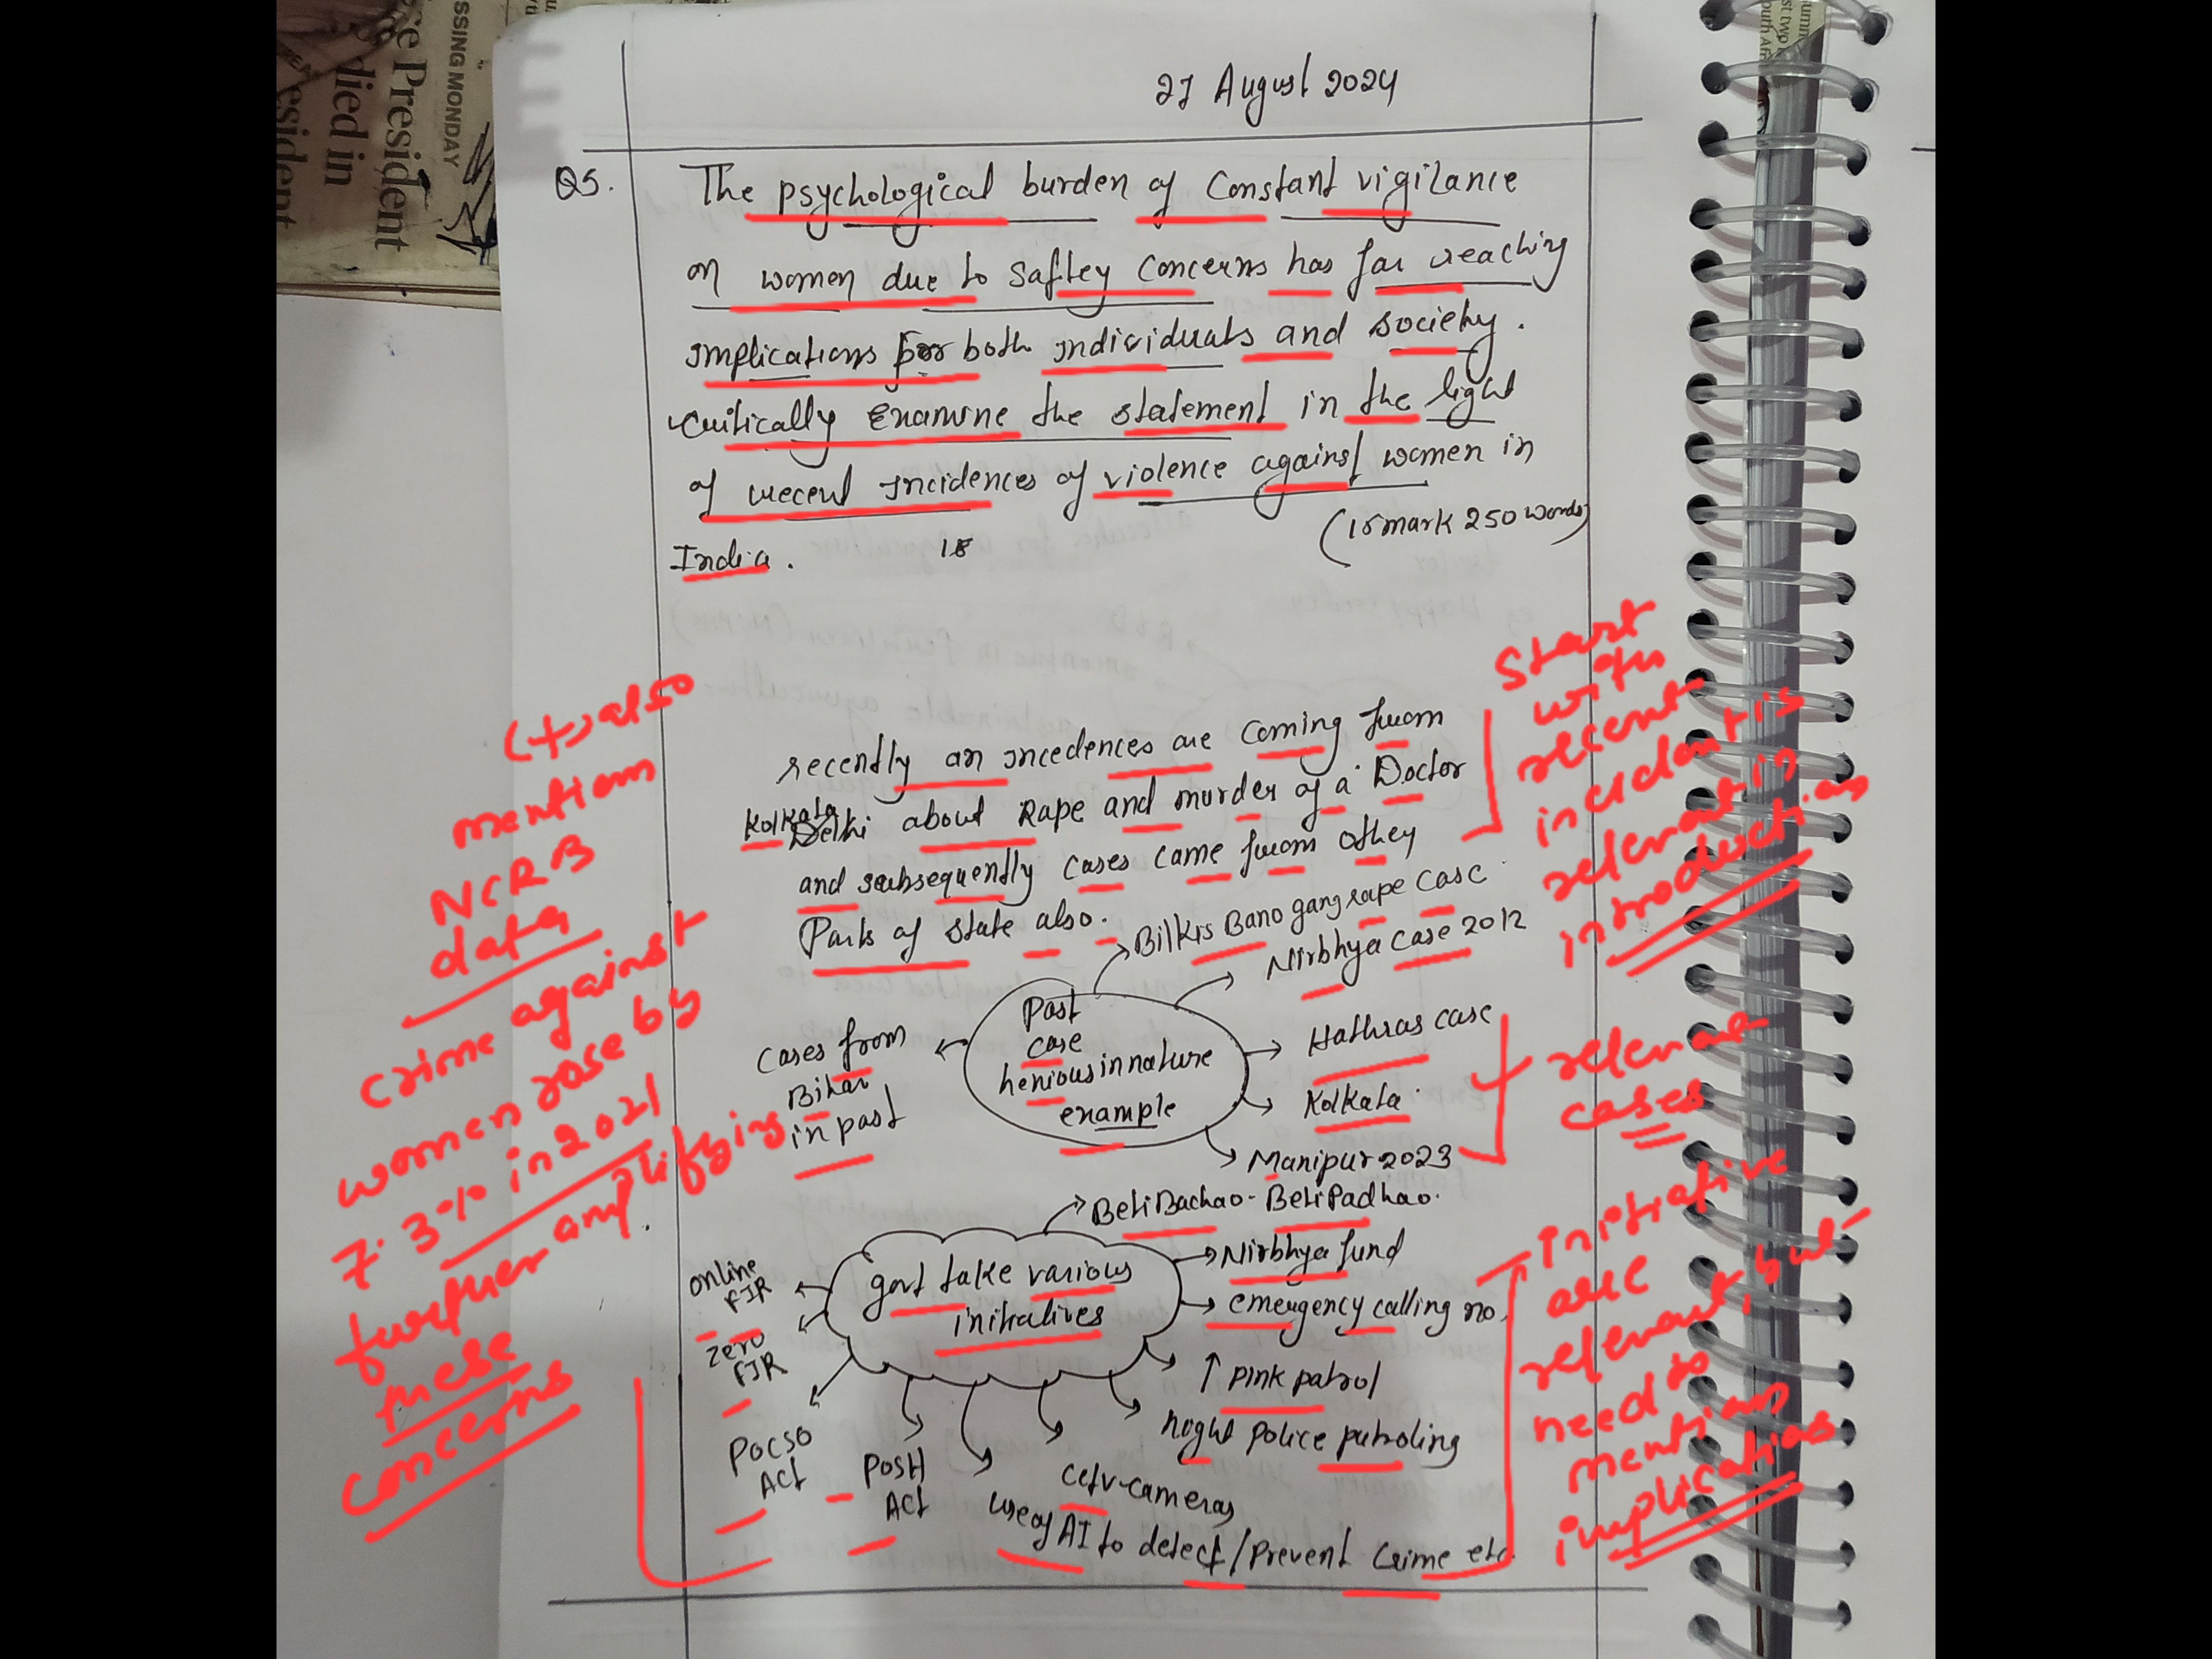 SSING MONDAY
e President
died in
esident
27 August 2024
Q5. The psychological burden of Constant vigilance
on women due to Saftey Concerns has far reaching
implications for both individuals and society.
Critically Examine the statement in the light
of recent incidences of violence against women in
India. 15 (15 mark 250 words)
recently an incedences are coming from
Kolkata Delhi about Rape and murder of a Doctor
and subsequently cases came from othey
Parts of state also.
Start
with
recent
incident is
relevant in
introduction
(+) also
mention
NCRB
data
crime against
women rose by
7.3% in 2021
further amplifying
these
concerns
Past
case
henious in nature
example
Bilkis Bano gang rape case
Nirbhya case 2012
Hathras case
Kolkata
Manipur 2023
Cases from
Bihar
in past
relevant
cases
govt take various
initiatives
Beti Bachao - Beti Padhao.
Nirbhya fund
emergency calling no.
↑ pink patrol
night police patroling
cctv-cameras
use of AI to detect/prevent crime etc.
POSH
ACT
POCSO
ACT
zero
FIR
online
FIR
initiative
are
relevant, but
need to
mention
implications